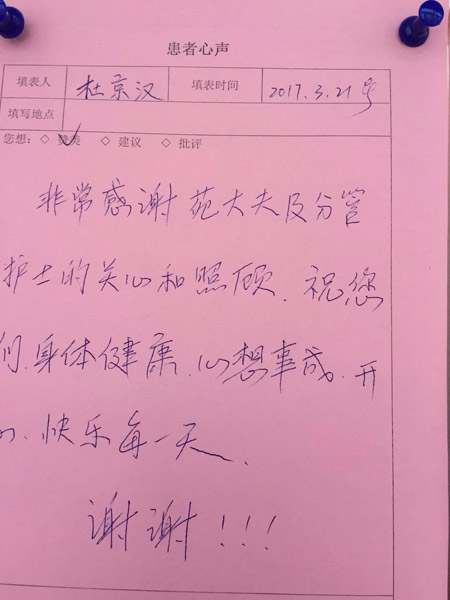 患者心声
填表人 杜京汉 填表时间 2017.3.21号
填写地点
您想：◇ 赞美 ◇ 建议 ◇ 批评
非常感谢苑大夫及分管
护士的关心和照顾、祝您
们、身体健康、心想事成、开
心、快乐每一天、
谢谢!!!